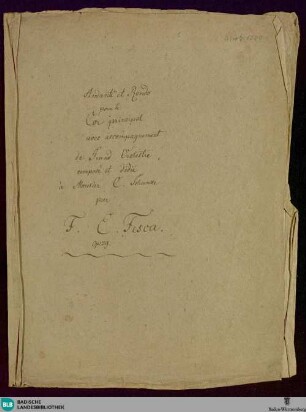 Andante et Rondo
pour le
Cor principal
avec accompagnement
de Grand Orchestre
composé et dédié
à Monsieur C. Schunke
par
F. E. Fesca.
BLB BADISCHE
LANDESBIBLIOTHEK
Baden-Württemberg